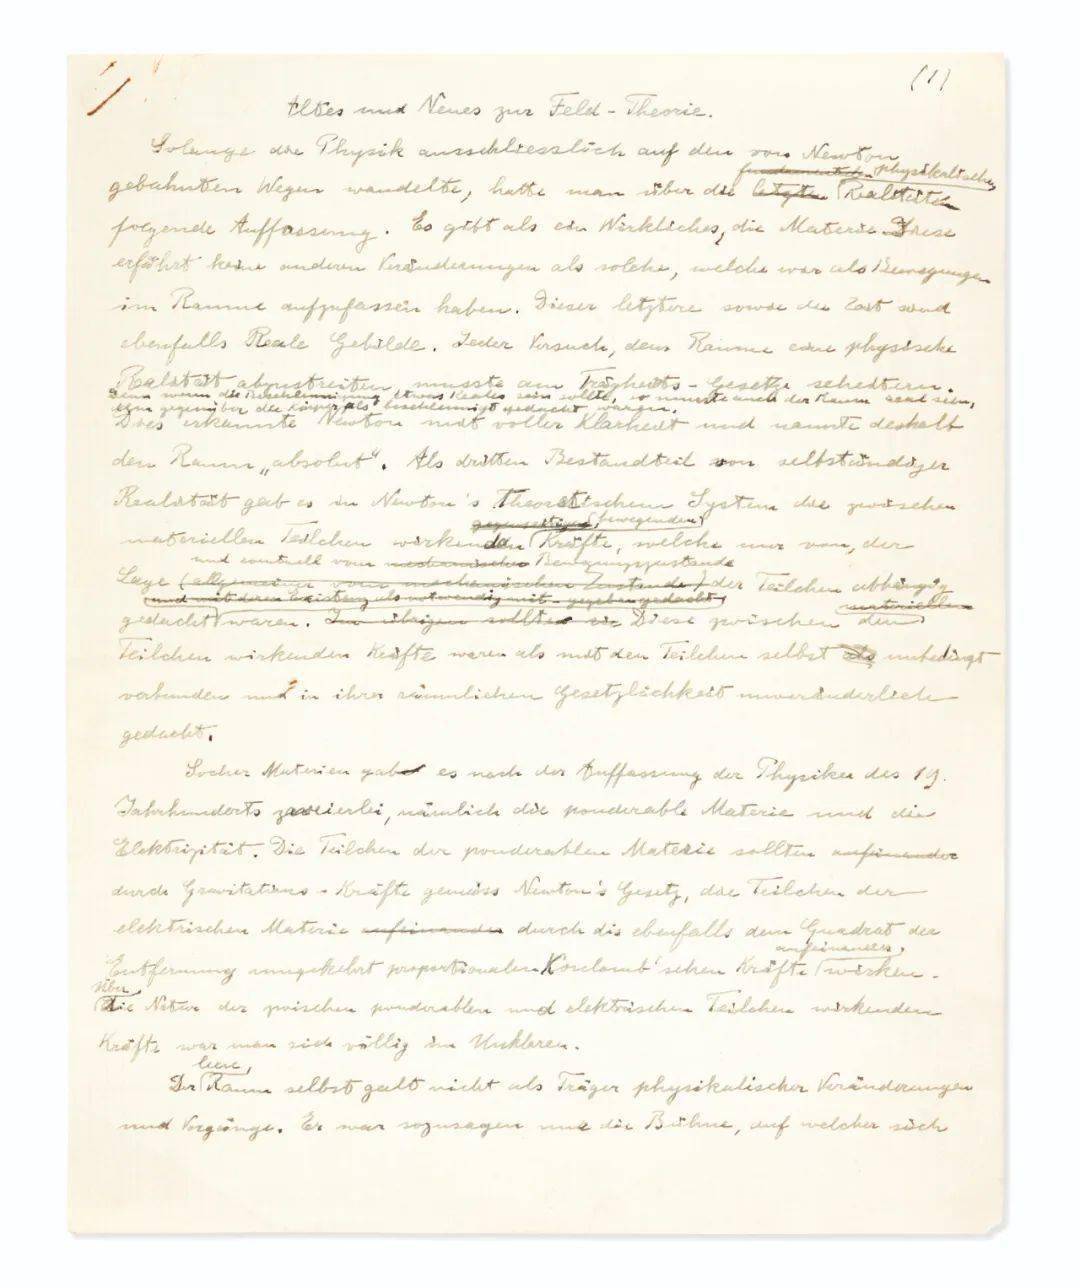 (1)
Altes und Neues zur Feld-Theorie.
Solange die Physik ausschliesslich auf den von Newton
fundamentalen physikalischen
gebahnten Wegen wandelte, hatte man über die letzten Realitäten
folgende Auffassung. Es gibt als ein Wirkliches, die Materie. Diese
erfährt keine anderen Veränderungen als solche, welche wir als Bewegungen
im Raume aufzufassen haben. Dieser letztere sowie die Zeit sind
ebenfalls Reale Gebilde. Jeder Versuch, dem Raume eine physische
Realität abzustreiten, musste am Trägheits-Gesetze scheitern.
Denn wenn die Beschleunigung etwas Reales sein sollte, so musste auch der Raum real sein,
dem gegenüber die Körper als beschleunigt gedacht waren.
Dies erkannte Newton mit voller Klarheit und nannte deshalb
den Raum „absolut“. Als dritten Bestandteil von selbständiger
Realität gab es in Newton's Theoretischem System die zwischen
gegenseitigen bewegenden
materiellen Teilchen wirkenden Kräfte, welche nur von der
und eventuell vom mechanischen Bewegungszustande
Lage (allgemeiner vom mechanischen Zustande) der Teilchen abhängig
und mit deren Existenz als notwendig mit-gegeben gedacht
materiellen
gedacht waren. Im übrigen sollten sie Diese zwischen den
Teilchen wirkenden Kräfte waren als mit den Teilchen selbst unbedingt
verbunden und in ihrer räumlichen Gesetzlichkeit unveränderlich
gedacht.
Socher Materien gab es nach der Auffassung der Physiker des 19.
Jahrhunderts zweierlei, nämlich die ponderable Materie und die
Elektrizität. Die Teilchen der ponderablen Materie sollten aufeinander
durch Gravitations-Kräfte gemäss Newton's Gesetz, die Teilchen der
elektrischen Materie aufeinander durch die ebenfalls dem Quadrat der
aufeinander
Entfernung umgekehrt proportionalen Coulomb'schen Kräfte wirken.
Über
Die Natur der zwischen ponderablen und elektrischen Teilchen wirkenden
Kräfte war man sich völlig im Unklaren.
leere
Der Raum selbst galt nicht als Träger physikalischer Veränderungen
und Vorgänge. Er war sozusagen nur die Bühne, auf welcher sich